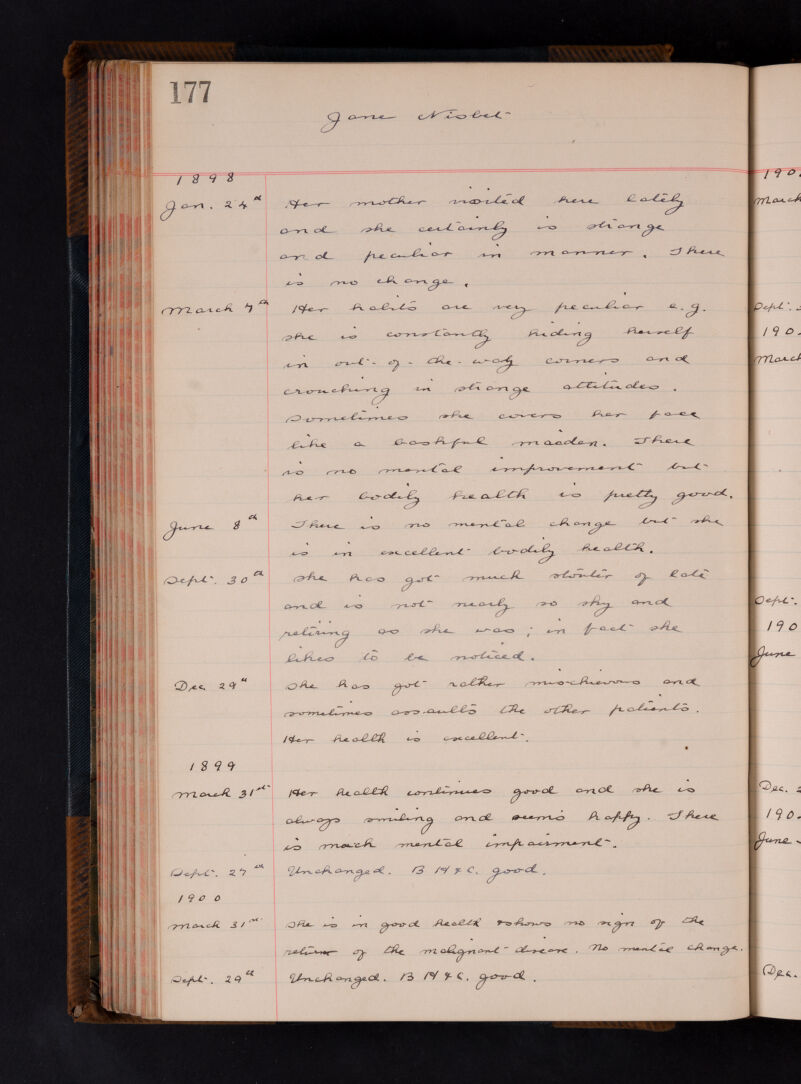 177
Jane Nisbet
1898
Jan. 24th Her mother visited here lately
and she certainly is strange
and peculiar in manner. There
is no change.
March 7th Her habits are very peculiar e.g.
she is constantly hiding herself
in out-of-the-way corners and
crouching in strange attitudes.
Sometimes she covers her face
like a bashful maiden. There
is no mental improvement but
her bodily health is pretty good.
June 8th There is no mental change but she
is in excellent bodily health.
Sept. 30th She has got much stouter of late
and is not nearly so shy and
retiring as she was; in fact she
likes to be noticed.
Dec. 29th She has got rather mischievous and
sometimes assaults the other patients.
Her health is excellent.
1899
March 31st Her health continues good and she is
always smiling and seems happy. There
is much mental impairment.
Sept. 27th Unchanged. B H & C. good.
1900
March 31st She is in good health & shows no sign of the
return of the malignant disease. No mental change.
Sept. 29th Unchanged. B H & C. good.
190
March
Sept.
190
March
Sept.
190
June
Dec.
190
June
Dec.